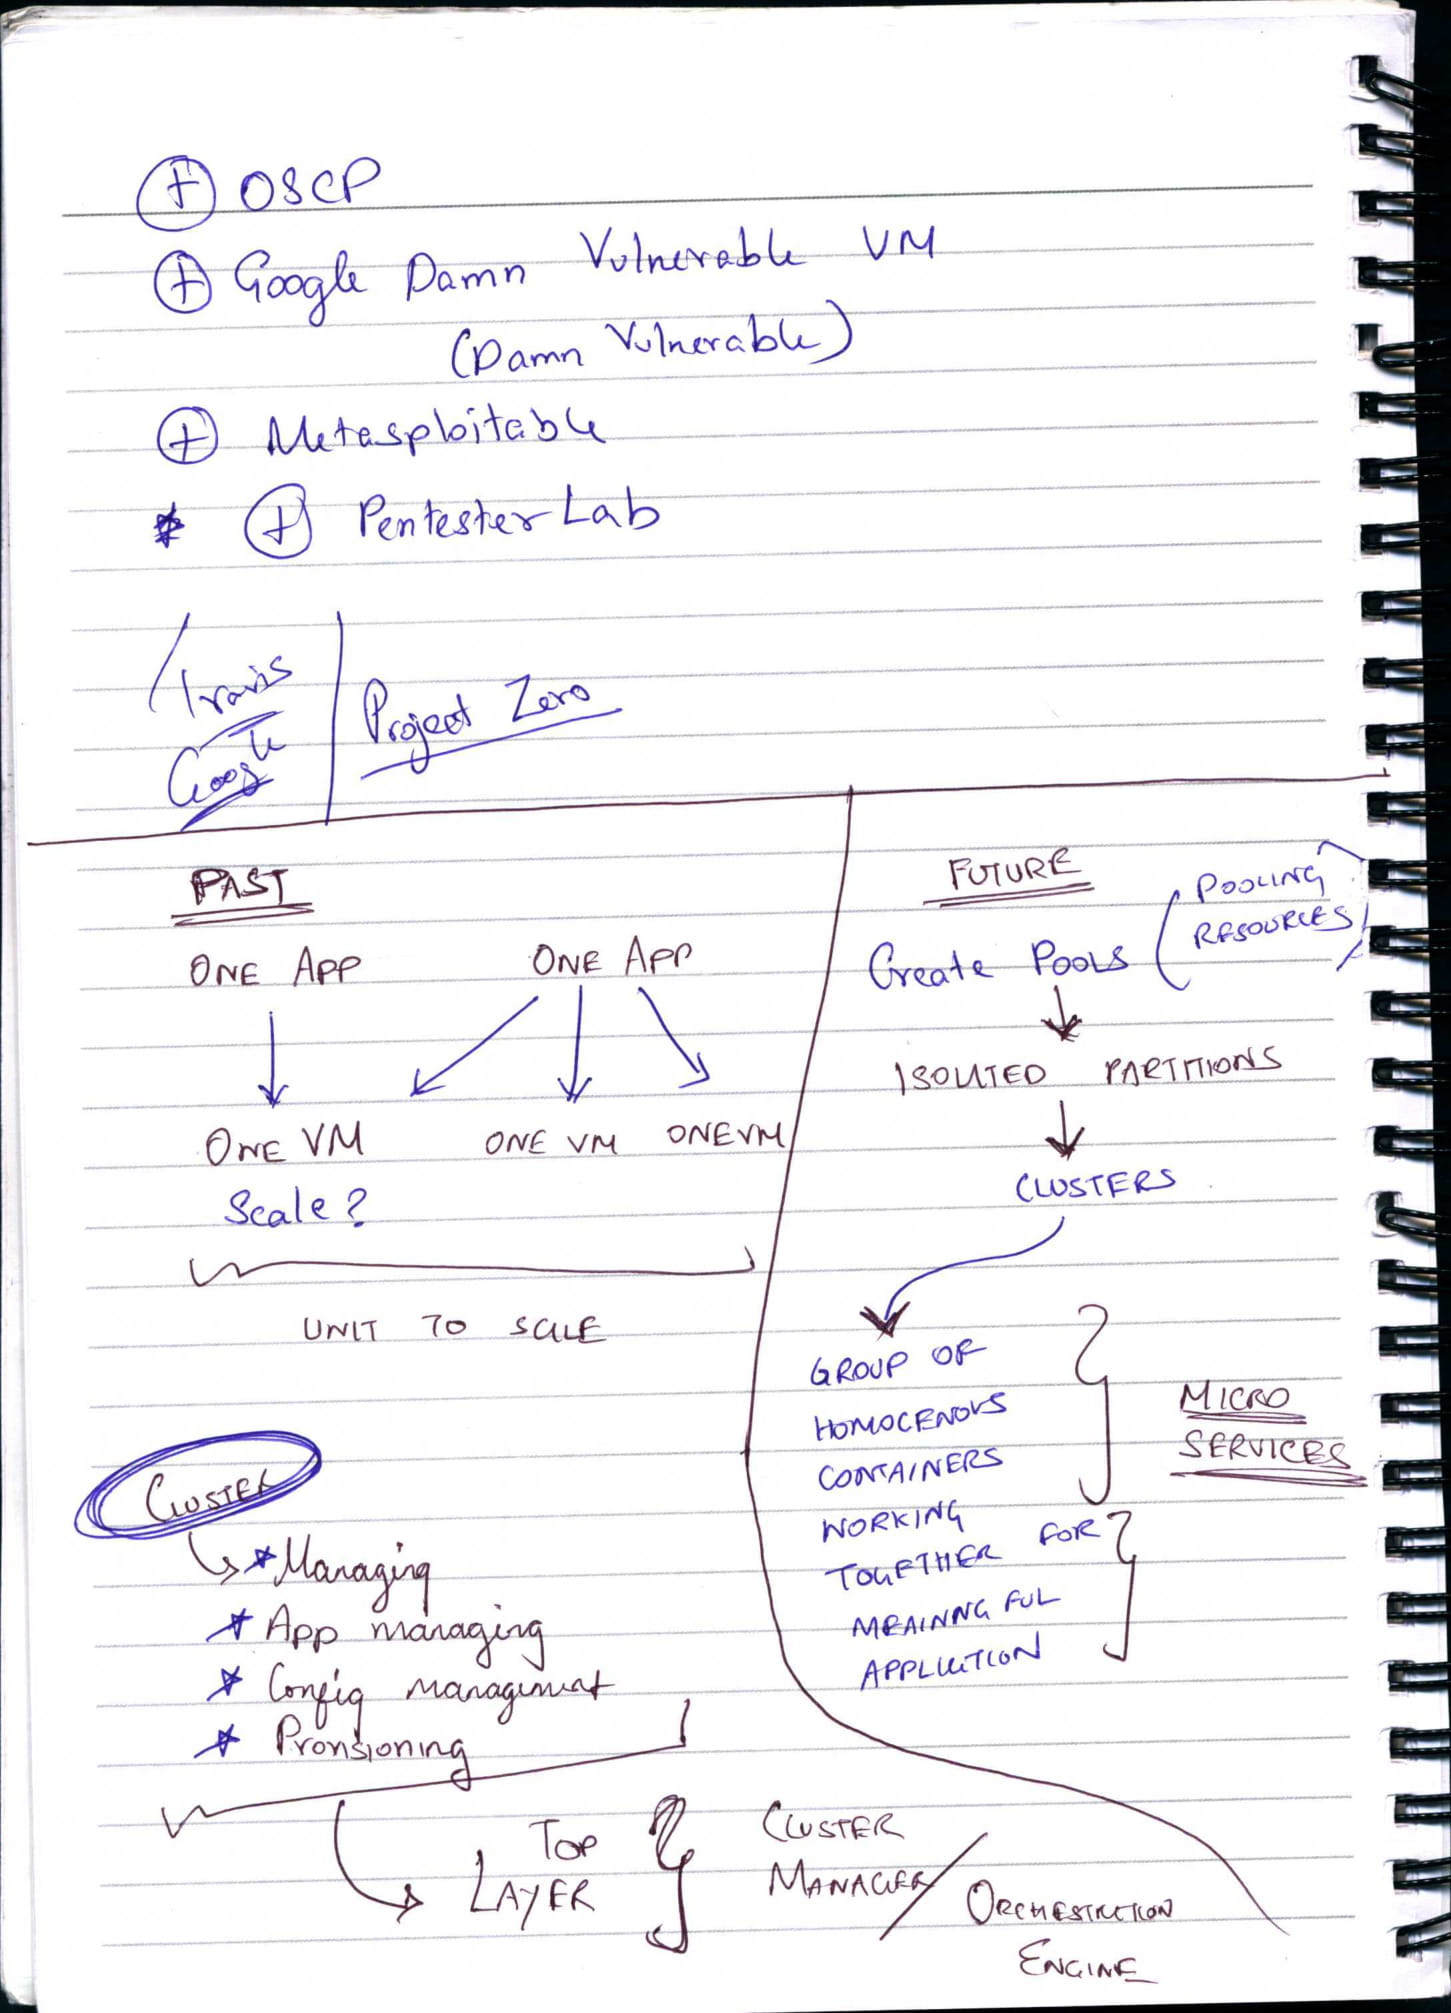 ⊕ OSCP
⊕ Google Damn Vulnerable VM
(Damn Vulnerable)
⊕ Metasploitable
* ⊕ Pentester Lab
Travis
Google
Project Zero
PAST
ONE APP ONE APP
ONE VM ONE VM ONE VM
Scale?
UNIT TO SCALE
FUTURE
Create POOLS (POOLING
RESOURCES)
ISOLATED PARTITIONS
CLUSTERS
GROUP OF
HOMOGENOUS
CONTAINERS
WORKING
TOGETHER FOR
MEAININGFUL
APPLICATION
MICRO
SERVICES
CLUSTER
* Managing
* App managing
* Config management
* Provisioning
TOP
LAYER
CLUSTER
MANAGER /
ORCHESTRATION
ENGINE